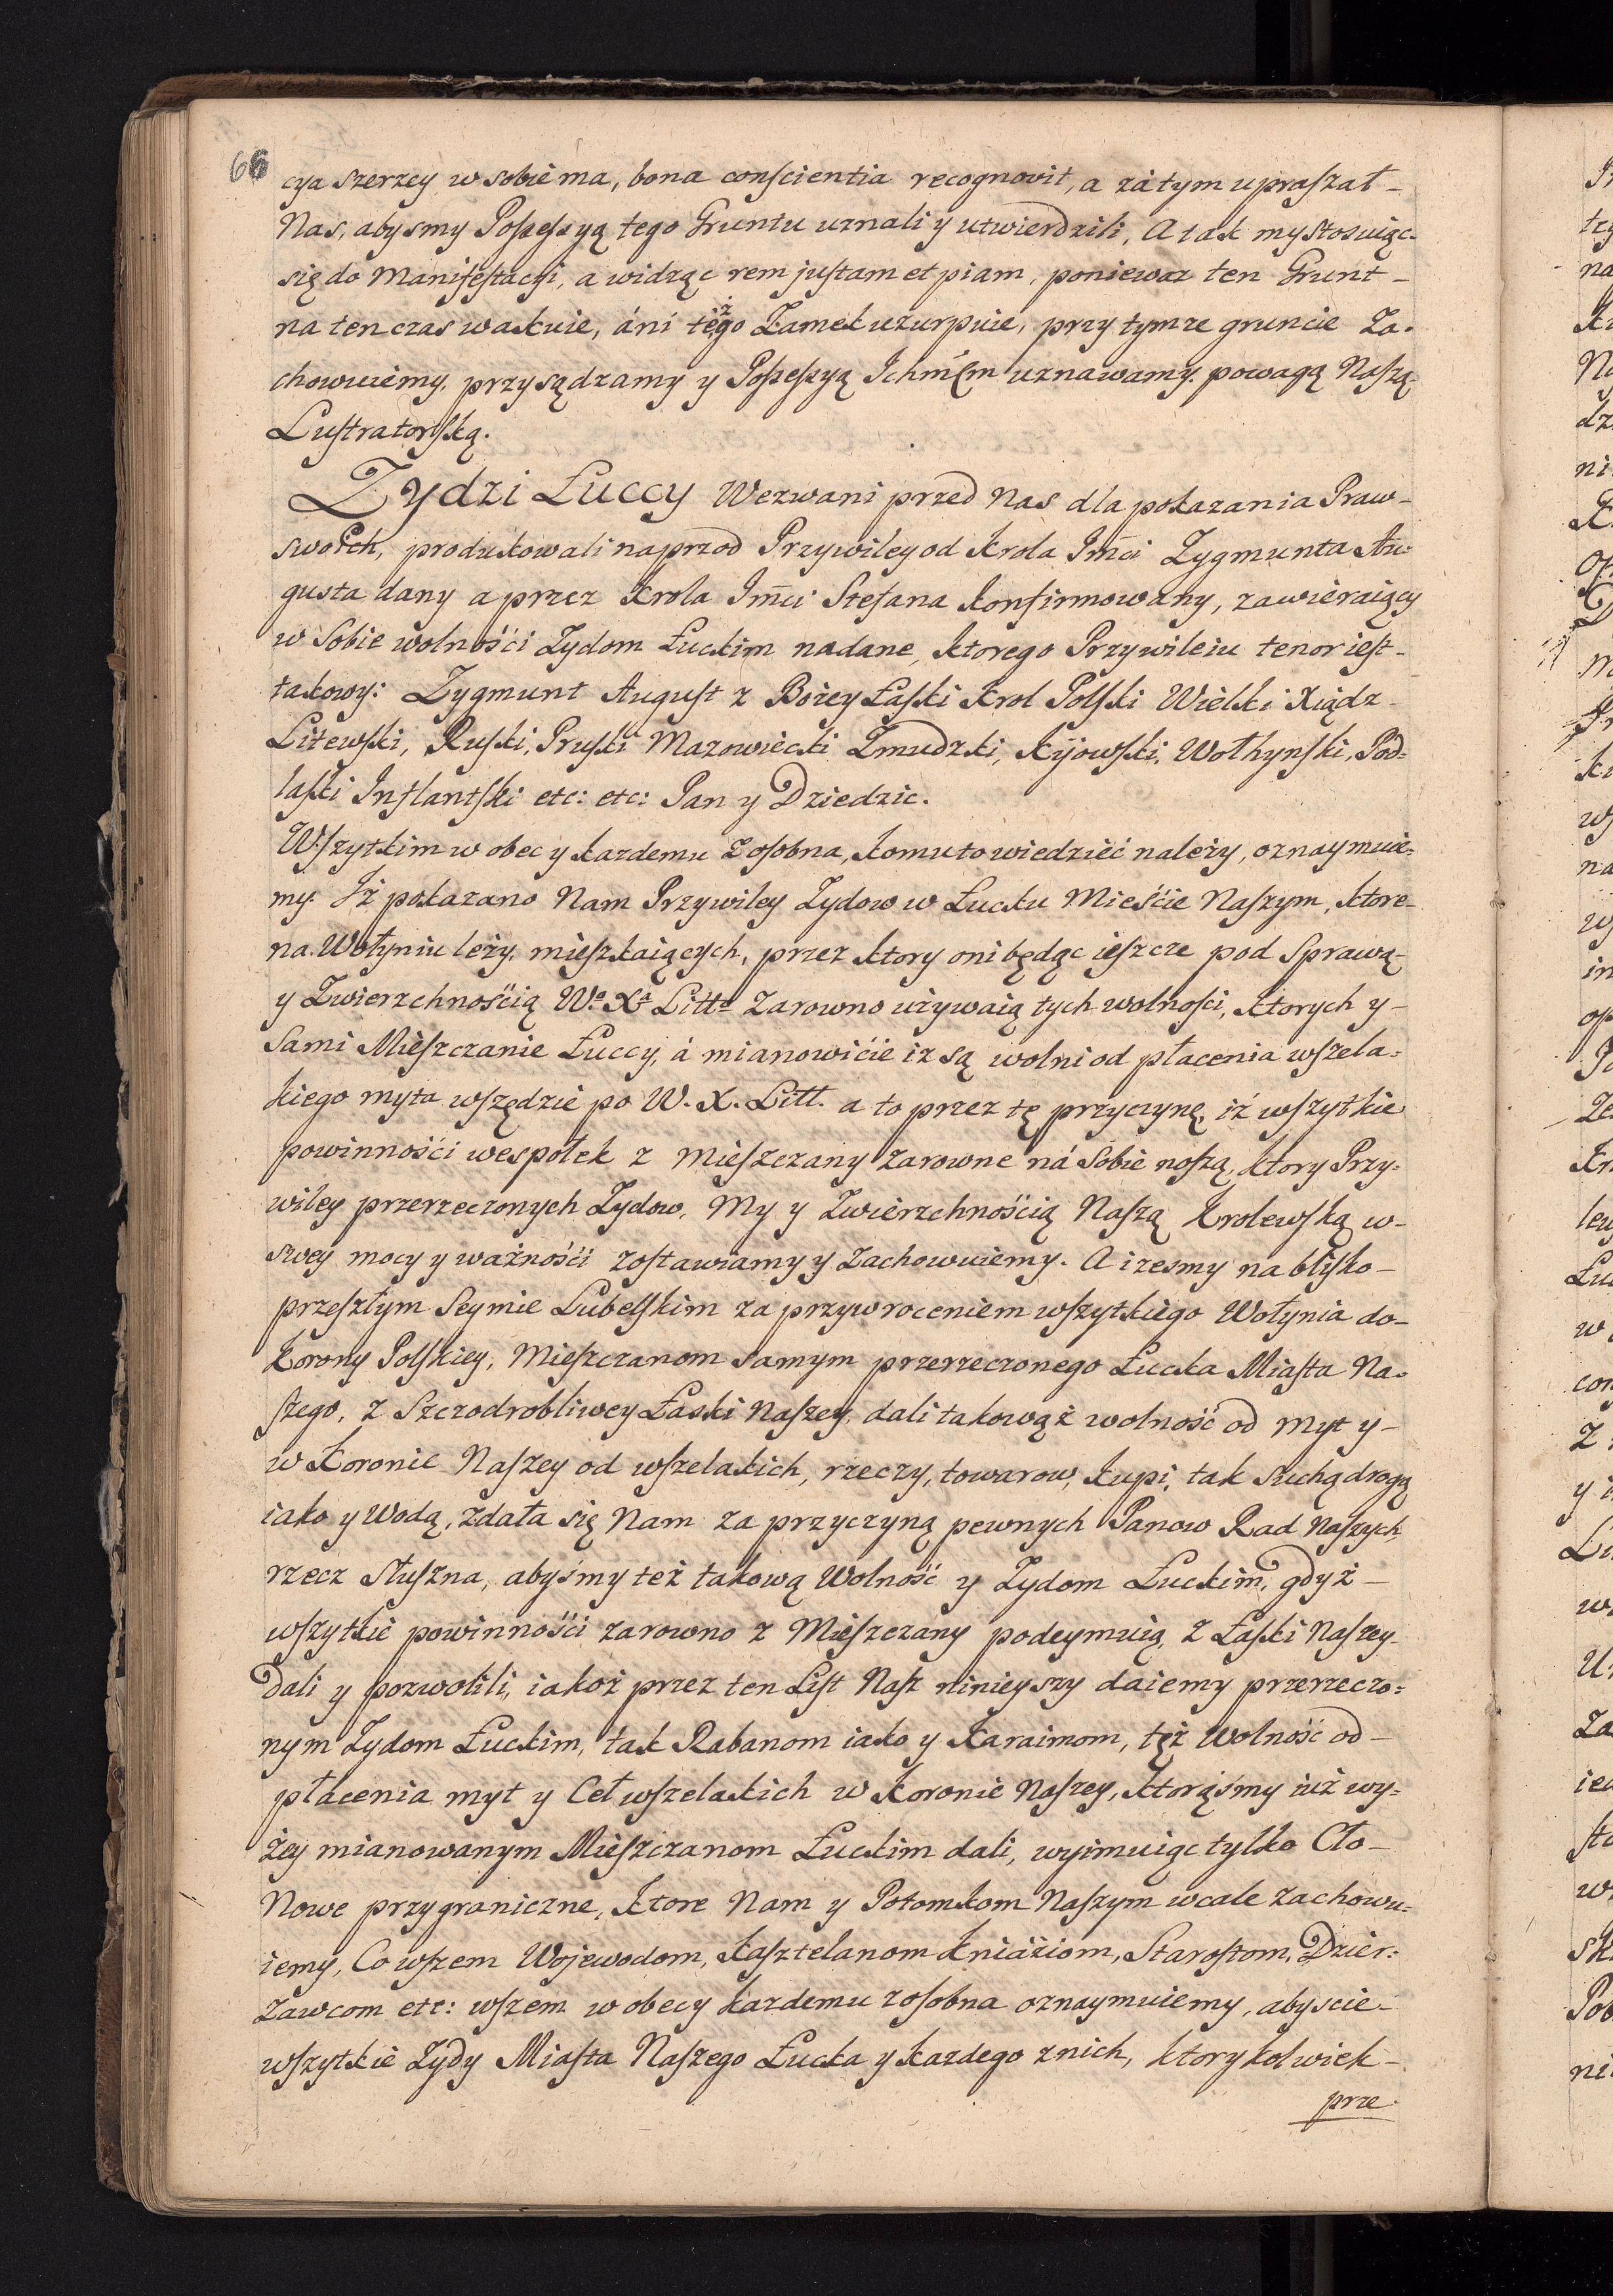 66
cya szerzey w sobie ma, bona conscientia recognovit, a zátym upraszał-
Nas, abysmy Possessyą tego Gruntu uznali y utwierdzili, A tak my stosuiąc-
się do Manifestacyi, a widząc rem justam et piam, poniewaz ten Grunt-
na ten czas wakuie, áni tegoż Zamek uzurpuie, przy tymze gruncie Za-
chowuiemy, przysądzamy y Possessyą Ichmćm uznawamy powagą Naszą
Lustratorską.
Zydzi Łuccy Wezwani przed Nas dla pokazania Praw-
swoich, produkowali naprzod Przywiley od Krola Jmći Zygmunta Au-
gusta dany a przez Krola Jmći Stefana Konfirmowany, zawieraiący
w Sobie wolnośći Zydom Łuckim nadane, ktorego Przywileiu tenor iest-
takowy: Zygmunt August z Bożey Łaski Krol Polski Wielki Xiądz
Litewski, Ruski, Pruski Mazowiecki Zmudzki, Kijowski, Wołhynski, Pod=
laski Inflantski etc: etc: Pan y Dziedzic.
Wszytkim w obec y kazdemu Zosobna, komu to wiedzieć należy, oznaymuie=
my. Iż pokazano Nam Przywiley Zydow w Łucku Mieście Naszym, ktore-
na Wołyniu leży, mieszkaiących, przez ktory oni będąc ieszcze pod Sprawą-
y Zwierzchnośćią Wo Xa Litto Zarowno używaią tych wolnosci, ktorych y-
Sami Mieszczanie Łuccy, á mianowićie iz są wolni od płacenia wszela=
kiego myta wszędzie po W. X. Litt. a to przez tę przyczynę, iż wszytkie
powinnośći wespołek z Mieszczany zarowne ná Sobie noszą, ktory Przy=
wiley przerzeczonych Zydow, My y Zwierzchnośćią Naszą Krolewską w-
swey mocy y ważnośći zostawiamy y Zachowuiemy. A izesmy na blisko-
przeszłym Seymie Lubelskim za przywroceniem wszytkiego Wołynia do-
Korony Polskiey, Mieszczanom samym przerzeczonego Łucka Miasta Na-
szego, z Szczodrobliwey Łaski Naszey, dali takowąż wolność od Myt y-
w Koronie Naszey od wszelakich, rzeczy, towarow, kupi, tak suchą drogą
iako y Wodą, zdała się Nam za przyczyną pewnych Panow Rad Naszych
rzecz słuszna, abyśmy też takową Wolność y Zydom Łuckim, gdyż-
wszytkie powinnośći zarowno z Mieszczany podeymuią, z Łaski Naszey-
dali y pozwolili, iakoż przez ten List Nasz ninieyszy daiemy przerzeczo=
nym Zydom Łuckim, tak Rabanom iako y Karaimom, tęż Wolność od-
płacenia myt y Ceł wszelakich w Koronie Naszey, ktorąśmy iuż wy=
żey mianowanym Mieszczanom Łuckim dali, wyimuiąc tylko Cło-
Nowe przygraniczne, ktore Nam y Potomkom Naszym wcale zachowu=
iemy, Co wszem Wojewodom, Kasztelanom Kniáźiom, Starostom, Dzier=
zawcom etc: wszem w obecy kazdemu zosobna oznaymuiemy, abyscie-
wszytkie Zydy Miasta Naszego Łucka y kazdego z nich, ktorykolwiek-
prze-